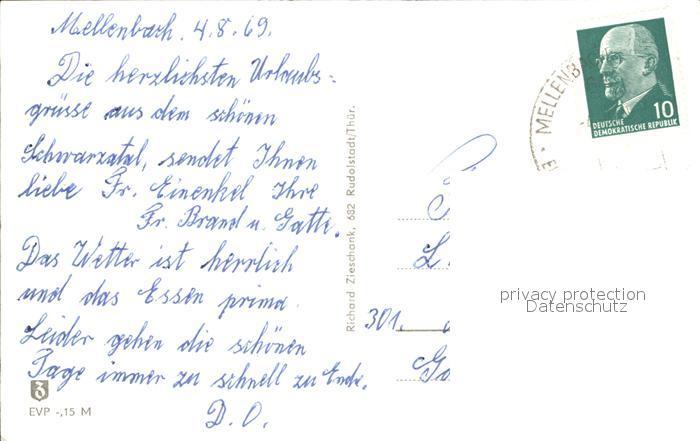 Mellenbach. 4.8.69.
Die herzlichsten Urlaubs-
grüsse aus dem schönen
Schwarzatal, sendet Ihnen
liebe Fr. Einenkel Ihre
Fr. Brand u. Gatte.
Das Wetter ist herrlich
und das Essen prima.
Leider gehen die schönen
Tage immer zu schnell zu Ende.
D. O.
EVP -,15 M
Richard Zieschank, 682 Rudolstadt/Thür.
MELLENB
10
DEUTSCHE
DEMOKRATISCHE REPUBLIK
L.
301.
Go
privacy protection
Datenschutz